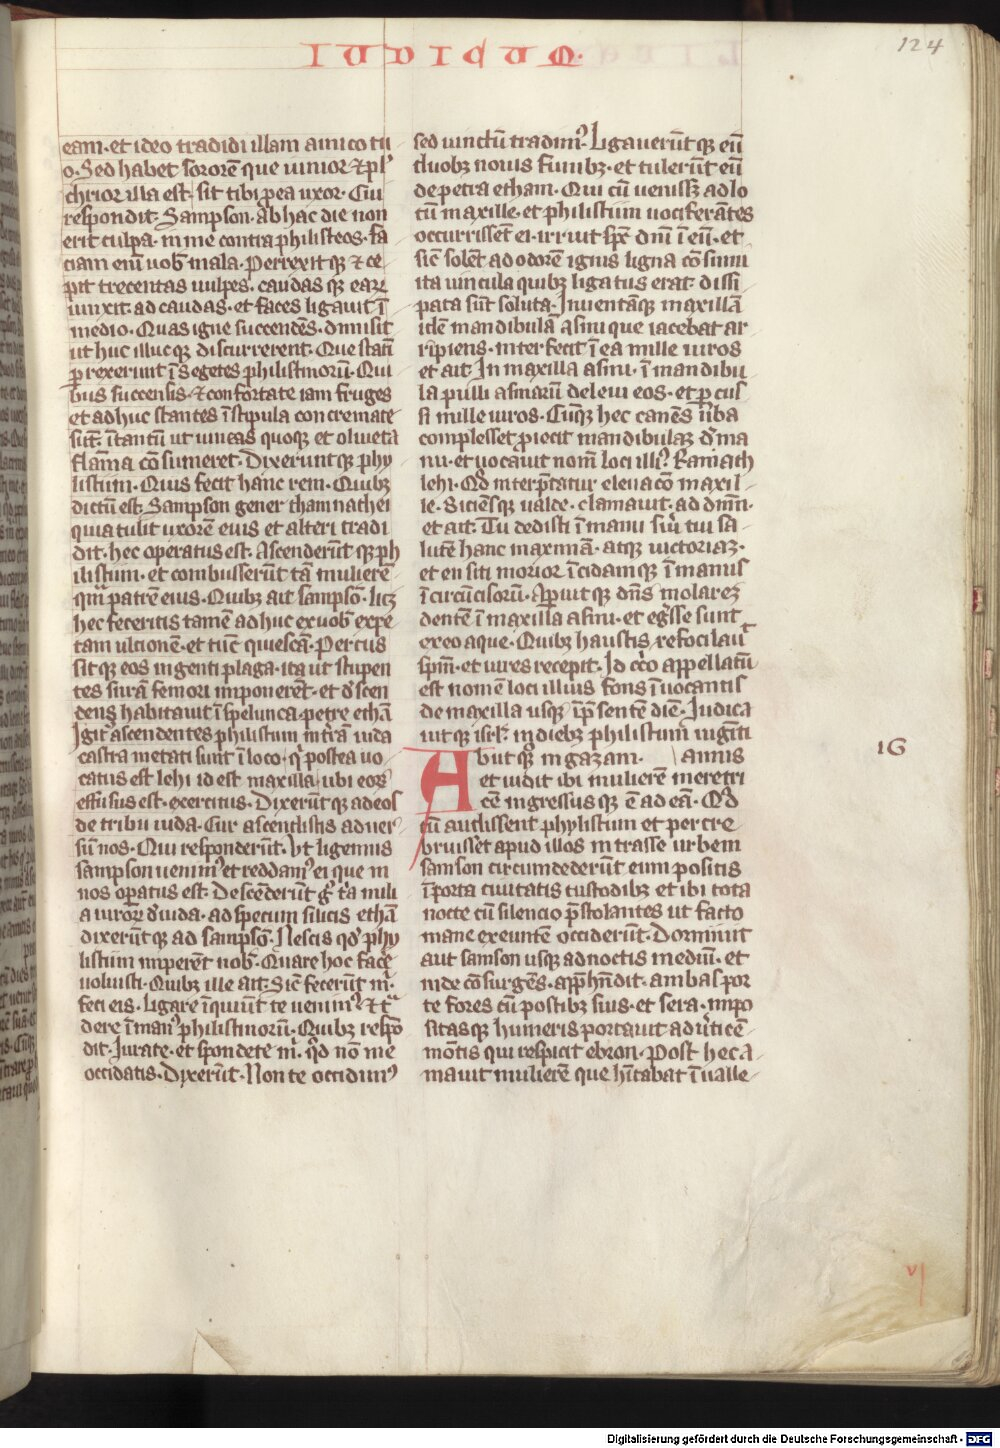 IUDICUM
124
eam. et ideo tradidi illam amico tu
o. Sed habet sororē que iunior & pl᷎
chrior illa est. sit tibi p ea uxor. Cui
respondit Sampson. ab hac die non
erit culpa in me contra philisteos. fa
ciam enī uob̄ mala. Perrexit qȝ & ce
pit trecentas uulpes. caudas qȝ earꝝ
iunxit ad caudas. et faces ligauit ī
medio. Quas igne succendēs. dimisit
ut huc illuc qȝ discurrerent. Que statī
ꝑrexerunt ī segetes philistinorū. Qui
bus succensis. & confortate iam fruges
et adhuc stantes ī stipula concremate
sūt. ītantū ut uineas quoqȝ et oliueta
flāma cōsumeret. Dixeruntqȝ phy
listiim. Quis fecit hanc rem. Quibȝ
dictū est. Sampson gener thamnathei
quia tulit uxorē eius et alteri tradi
dit. hec operatus est. Ascenderūt qȝ ph
ilistiim. et combusserūt tā mulierē
qm̄ patrē eius. Quibȝ ait sampsō. licȝ
hec feceritis tamē adhuc ex uob̄ expe
tam ultionē. et tūc quiescā. Percus
sit qȝ eos ingenti plaga. ita ut stupen
tes surā femori imponerēt. et dscen
dens habitauit ī spelunca petre ethā
Igit᷎ ascendentes philistiim in t᷎rā iuda
castra metati sunt ī loco. q᷎ postea uo
catus est lehi id est maxilla. ubi eoꝝ
effusus est. exercitus. Dixerūtqȝ ad eos
de tribu iuda. Cur ascendistis aduer
sū nos. Qui responderūt. Vt ligemus
sampson uenimꝰ et reddamꝰ ei que in
nos oꝑatus est. Descēderūt g᷎ t᷎a mili
a uiroꝝ d iuda. ad specum silicis ethā
dixerūtqȝ ad sampsō. Nescis qd phy
listiim imperent nob̄. Quare hoc facē
uoluisti. Quibȝ ille ait. Sic̄ fecerūt m᷎.
feci eis. Ligare īquiūt te uenimꝰ & t᷎
dere ī manꝰ philistinorū. Quibȝ respō
dit. Iurate. et spondete m᷎. qd nō me
occidatis. Dixerūt. Non te occidimꝰ
sed uinctū tradimꝰ. Ligauerūtqȝ eū
duobȝ nouis funibȝ. et tulerūt eū
de petra etham. Qui cū uenissȝ ad lo
cū maxille. et philistiim uociferātes
occurrissēt ei. irruit sp̄c dnī ī eū. et
sic̄ solēt ad odorē ignis ligna cōsumi
ita uincula quibȝ ligatus erat. dissi
pata sūt soluta. Inuentāqȝ maxillā
idē mandibulā asini que iacebat ar
ripiens. interfecit ī ea mille uiros
et ait. In maxilla asini. ī mandibu
la pulli asinarū deleui eos. et ꝑcus
si mille uiros. Cūqȝ hec canēs ūba
complesset ꝓiecit mandibulaȝ d ma
nu. et uocauit nom̄ loci illiꝰ Ramath
lehi. Qd interp̄tatur eleuacō maxil
le. Sitiēsqȝ ualde. clamauit. ad dnm̄.
et ait. Tu dedisti ī manu sūi tui sa
lutē hanc maximā. atqȝ uictoriaȝ.
et en siti morior īcidamqȝ ī manus
ī circūcisorū. Apuit qȝ dns̄ molareȝ
dentē ī maxilla asini. et egsse sunt
ex eo aque. Quibȝ haustis refocilaū
spm̄. et uires recepit. Id cc̄o appellatū
est nomē loci illius fons īuocantis
de maxilla usqȝ ip̄sentē diē. Iudica
uitqȝ isrl᷎. in diebȝ philistiim uiginti
annis
Abiit qȝ in gazam.
et uidit ibi mulierē meretri
cē ingressus qȝ ē ad eā. Qd
cū audissent phylistiim et percre
bruisset apud illos intrasse urbem
samson circumdederūt eum positis
ī porta ciuitatis custodibȝ et ibi tota
nocte cū silencio p̄stolantes ut facto
mane exeuntē occiderūt. Dormiuit
aut samson usqȝ ad noctis mediū. et
inde cōsurgēs. appħndit. ambas por
te fores cū postibȝ suis. et sera. impo
sitasqȝ humeris portauit ad ūticē
mōtis qui respicit ebron. Post hec a
mauit mulierē que hītabat ī ualle
16
vj
Digitalisierung gefördert durch die Deutsche Forschungsgemeinschaft - DFG